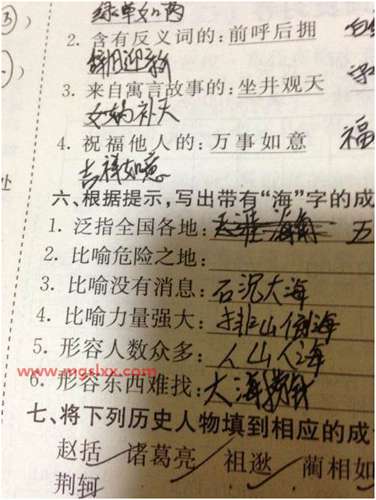 绿草如茵
2. 含有反义词的: 前呼后拥
辞旧迎新
3. 来自寓言故事的: 坐井观天
女娲补天
4. 祝福他人的: 万事如意 福
吉祥如意
六、根据提示,写出带有“海”字的成
1. 泛指全国各地: 天涯海角 五
2. 比喻危险之地:
3. 比喻没有消息: 石沉大海
4. 比喻力量强大: 排山倒海
5. 形容人数众多: 人山人海
6. 形容东西难找: 大海捞针
www.mgslxx.com
七、将下列历史人物填到相应的成
赵括 诸葛亮 祖逖 蔺相如
荆轲
处